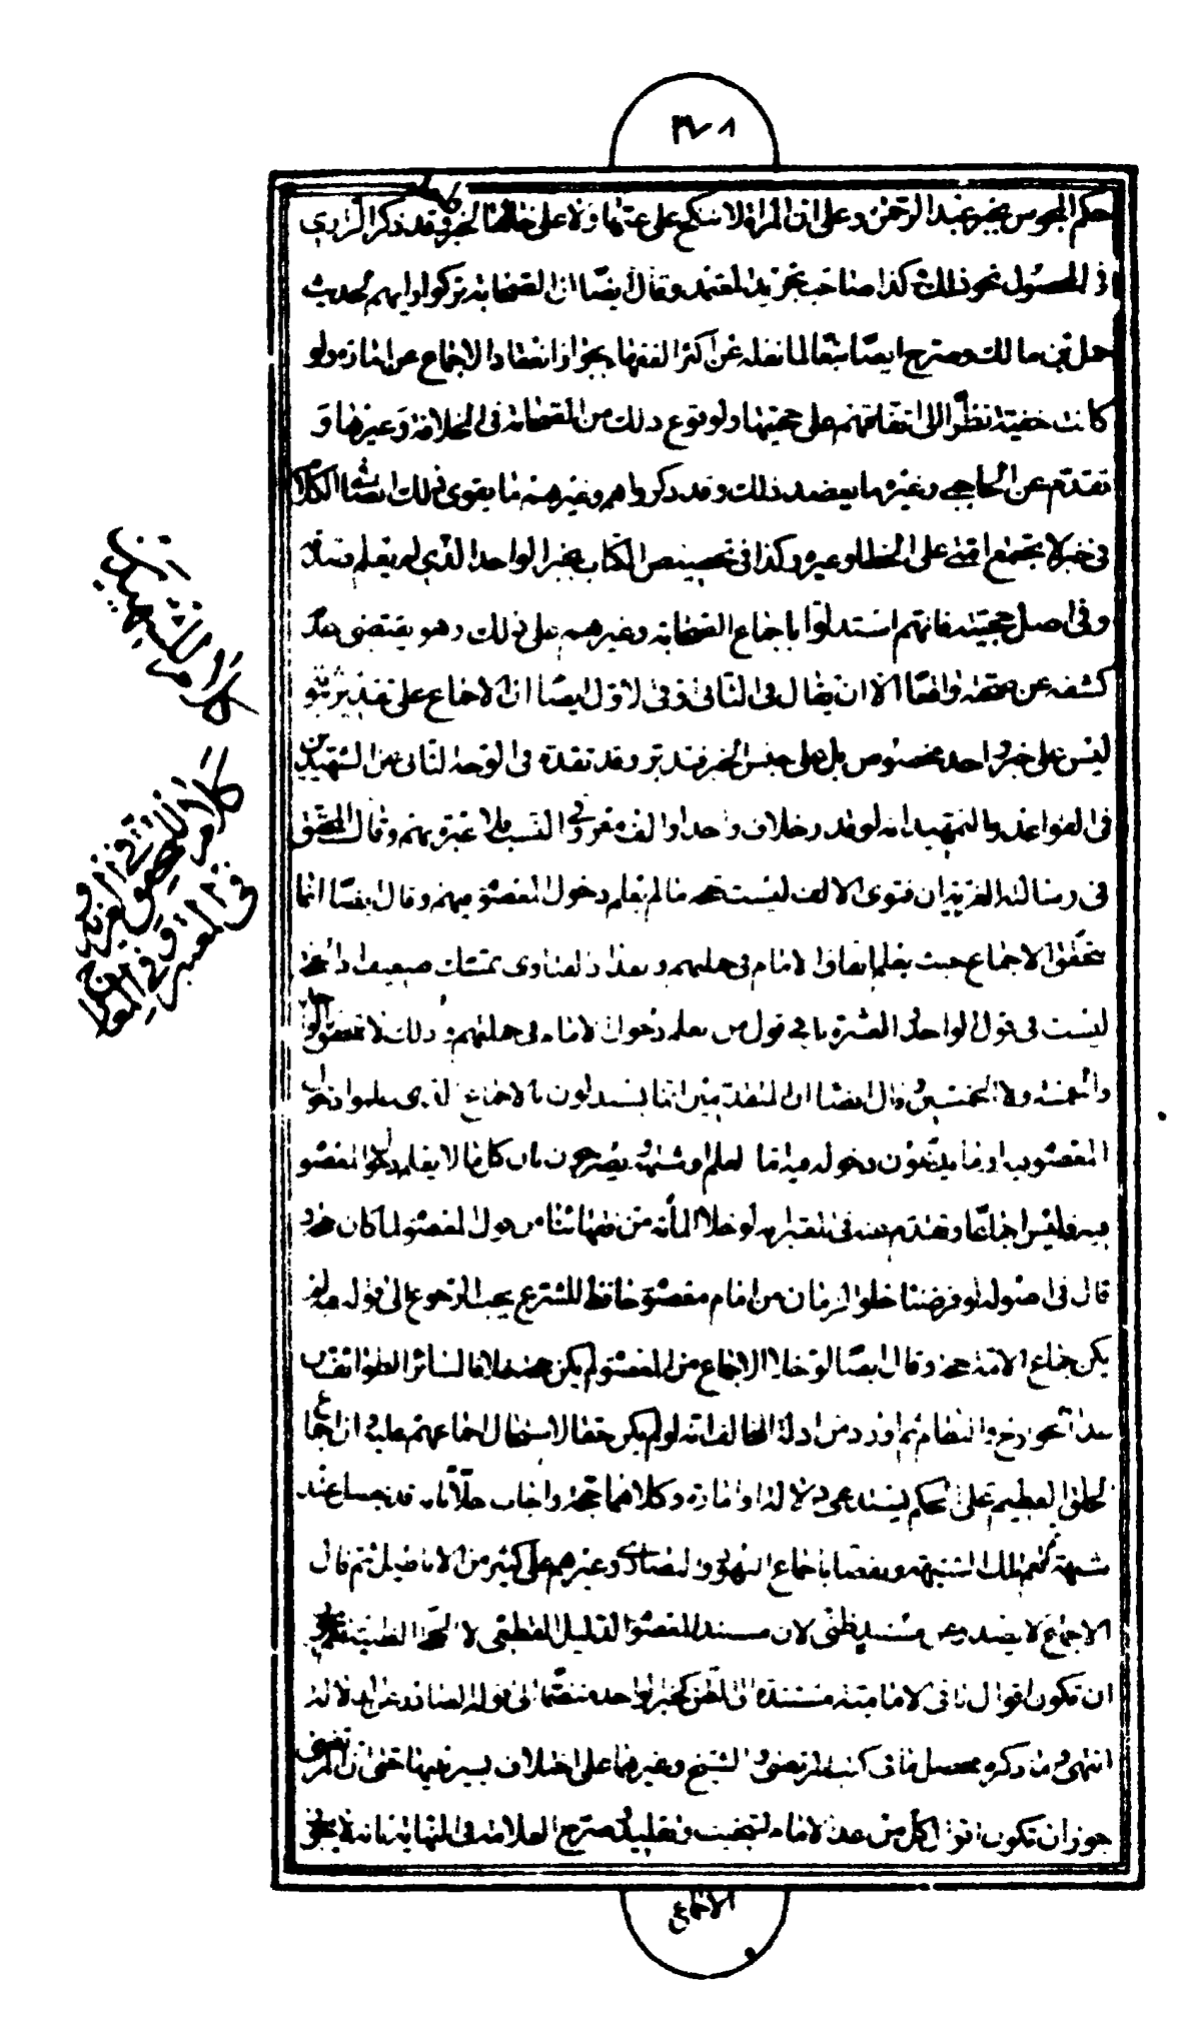 ٣٧٨
حكم المجوس بخبر عبد الرحمن وعلى ان المراة لا تنكح على عمتها ولا على خالتها لخبر وقد ذكر الرازي
في المحصول نحو ذلك كذا صاحب تجريد المعتمد وقال ايضا ان الصحابة تركوا اراءهم لحديث
حمل بن مالك وصرح ايضا تبعا لما نقله عن اكثر الفقهاء بجواز انعقاد الاجماع عن امارة ولو
كانت خفية نظرا الى اتفاقهم على حجيتها ولوقوع ذلك من الصحابة في الخلافة وغيرها و
تقدم عن الحاجبي وغيرهما يعضد ذلك وقد ذكروا هم وغيرهم ما يقوى ذلك ايضا الكلام
في خبر لا تجتمع امتي على الخطا وغيره وكذا في تخصيص الكتاب بخبر الواحد الذي لم يعلم
وفي اصل حجيته فانهم استدلوا باجماع الصحابة وغيرهم على ذلك وهو يقتضى بعد
كشفه عن واقعا الا ان يقال في الثاني وفي الاول ايضا ان الاجماع على تقدير ثبو
ليس على خبر واحد مخصوص بل على جنس الخبر فتدبر وقد تقدم في الوجه الثاني عن الشهيدين
في القواعد والتمهيد انه لو قدر خلاف واحد او الف معروفي النسب فلا عبرة بهم وقال المحقق
في رسالته العزية ان فتوى الالف ليست حجة ما لم يعلم دخول المعصوم فيهم وقال ايضا انما
يتحقق الاجماع حيث يعلم اتفاق الامام في جملتهم و الفتاوى تمسك ضعيف اذ الحجة
ليست في قول الواحد العشرة بل في قول من يعلم دخول الامام في جملتهم و ذلك لا الواحد
والخمسة ولا الخمسين وقال ايضا ان المتقدمين انما يستدلون بالاجماع الذي علموا دخول
المعصوم او ما يدعون دخوله فيه لعلم او شبهة يصرحون بان كلما لا يعلم دخول المعصوم
فيه فليس اجماعا وتقدم عنه في المعتبر انه لو خلا المأة من فقهائنا من قول المعصوم لما كان حجة و
قال في اصوله لو فرضنا خلو الزمان من امام معصوم حافظ للشرع يجب الرجوع الى قوله لم
يكن اجماع الامة حجة وقال ايضا لو خلا الاجماع من المعصوم لم يكن حجة خلافا لسائر الطوائف
عدا الخوارج والنظام ثم اورد من ادلة المخالف انه لو لم يكن حقا لاستحال اجماعهم عليه ان اجماع
الخلق العظيم على الحكم يستدعى دلالة او امارة وكلاهما حجة واجاب حلا بانه قد يحصل عند
شبهة كثير تلك الشبهة ونقضا باجماع اليهود والنصارى وغيرهم على كثير من الاباطيل ثم قال
الاجماع لا يصدر عن مستند ظني لان مستند المعصوم الدليل القطعى لا الحجة الظنية
ان تكون اقوال باقي الامامية مستندة الى الظن كخبر واحد منضما الى قوله الصادر عن الدلالة
انتهى وما ذكره محصل ما في كتب المرتضى والشيخ وغيرهما على اختلاف يسير فيهما حتى ان المرتضى
جوز ان تكون اقوال كل من عد الامام لتبخيت وتقليد صرح العلامة في النهاية بانه لا يجوز
الاجماع
كلام للشهيدين
كلام للمحقق في العزية
وفي المعتبر وفي المعارج